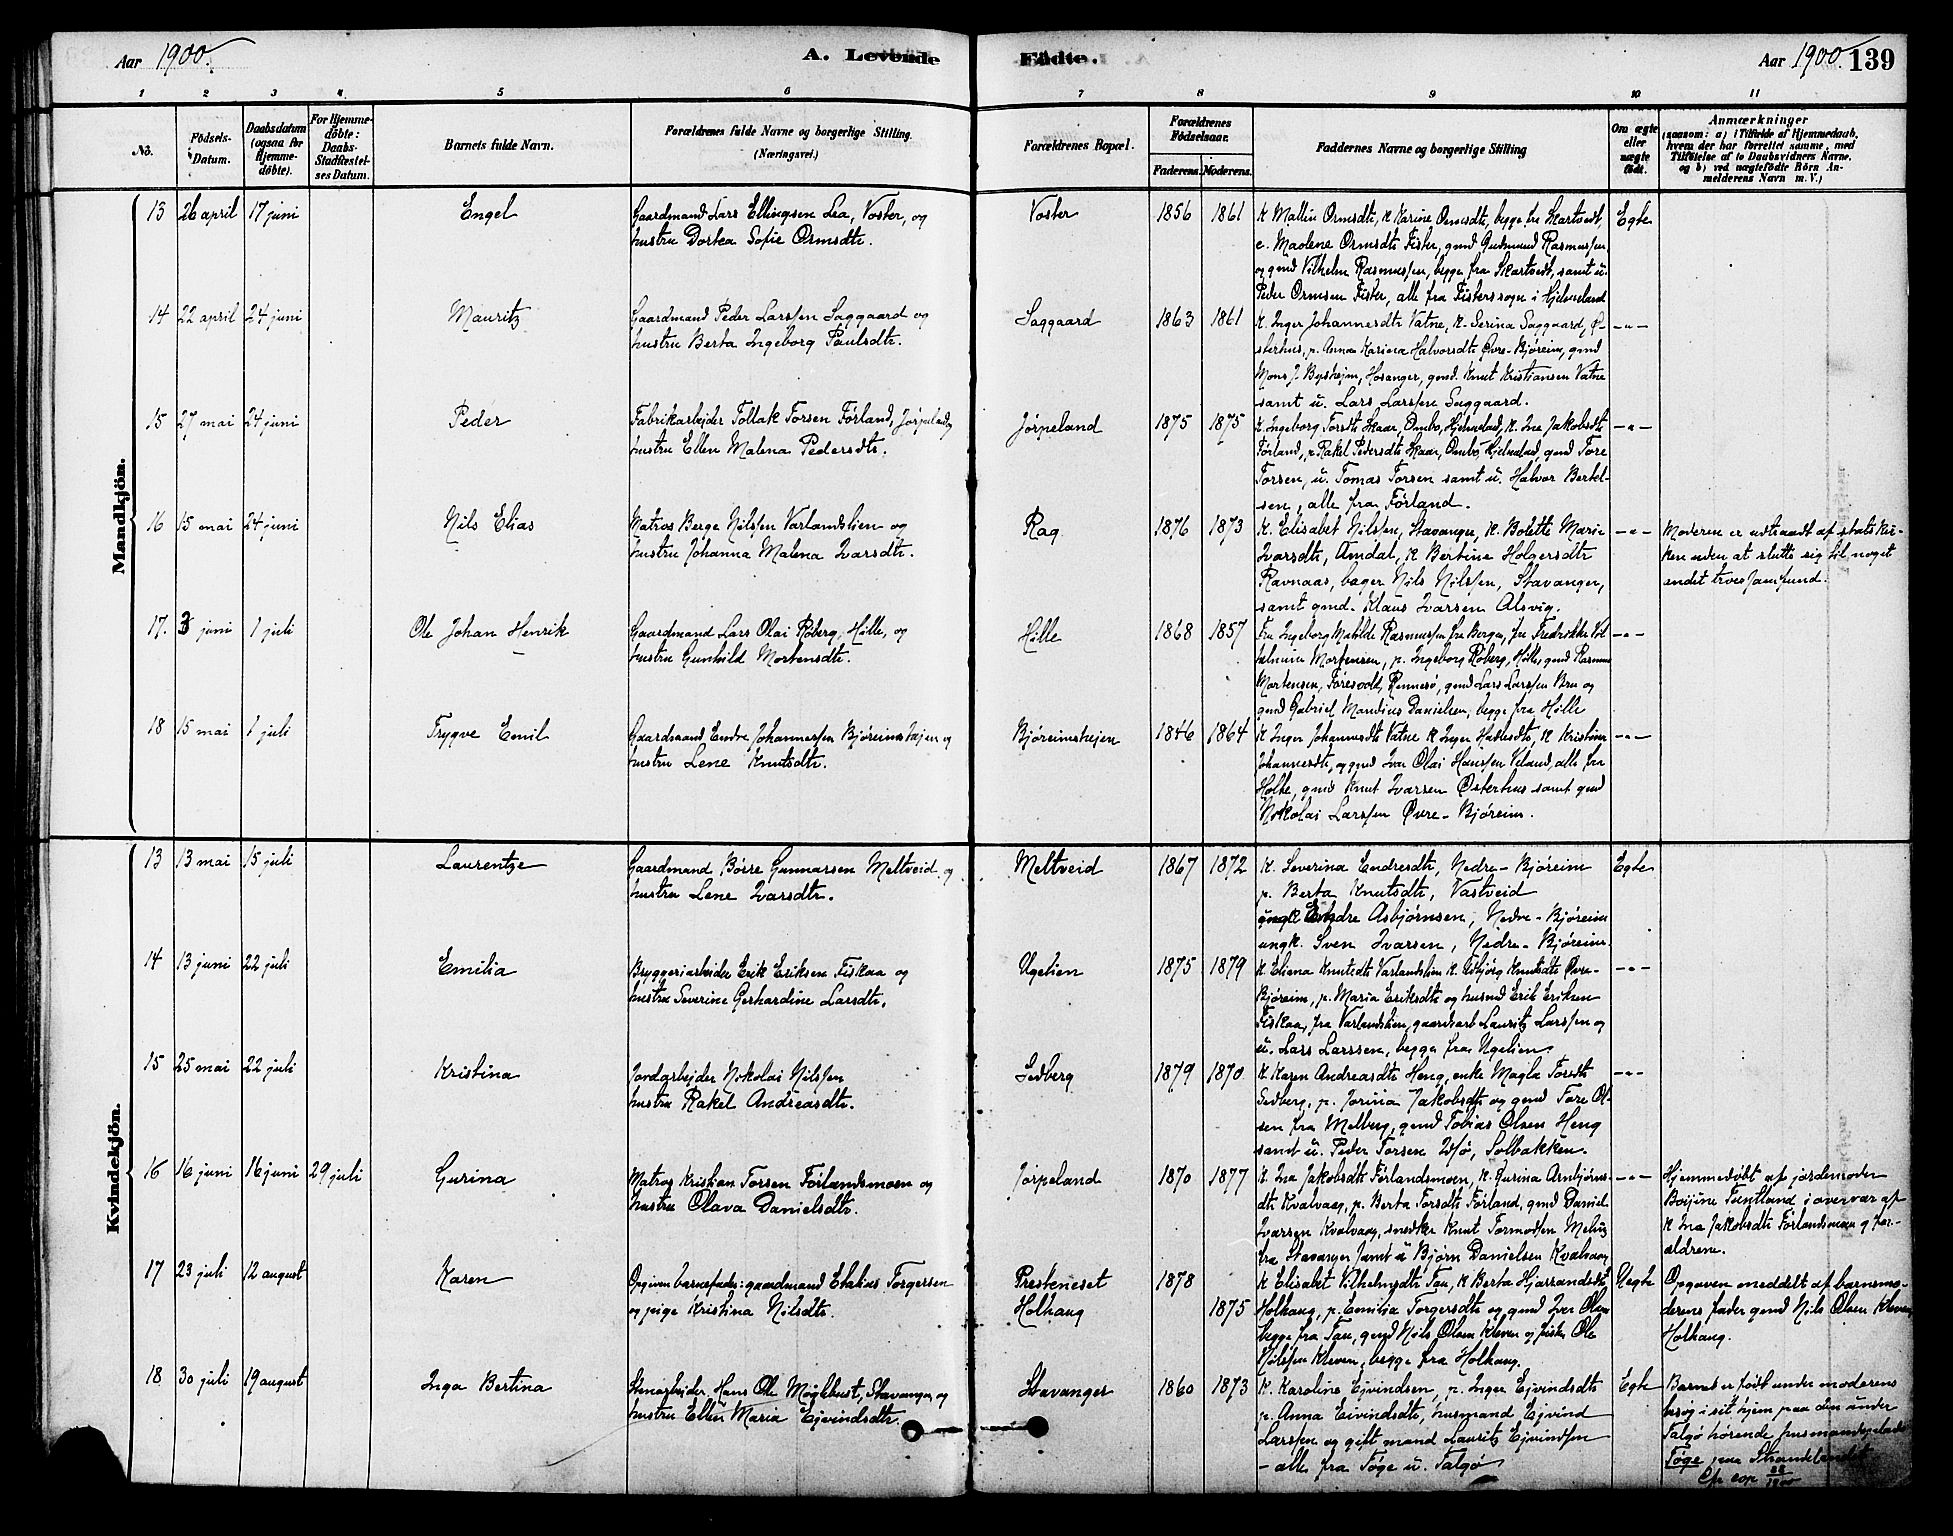 Aar 1900.
A. Levende Födte.
Aar 1900. 139
1 2 3 4 5 6 7 8 9 10 11
No.
Födsels-Datum.
Daabsdatum (ogsaa for Hjemme-döbte).
For Hjemme-döbte: Daabs-Stadfæstel-ses Datum.
Barnets fulde Navn.
Forældrenes fulde Navne og borgerlige Stilling. (Næringsvei.)
Forældrenes Bopæl.
Forældrenes Födselsaar.
Faderens. Moderens.
Faddernes Navne og borgerlige Stilling
Om ægte eller uægte födt.
Anmærkninger
(saasom: a) i Tilfælde af Hjemmedaab,
hvem der har forrettet samme, med
Tilföielse af to Daabsvidners Navne,
og b) ved uægtefödte Börn An-
melderens Navn m. V.)
Mandkjön.
13 26 april 17 juni Engel
Gaardmand Lars Ellingsen Lea, Voster, og
hustru Dortea Sofie Ormsdtr.
Voster 1856 1861
K Mallin Ormsdtr, K Karine Ormsdtr, begge fra Skartvedt,
e. Maolene Ormsdtr Fister, gmd Gudmund Rasmussen
og gmd Vilhelm Rasmussen, begge fra Skartvedt, samt u.
Peder Ormsen Fister, alle fra Fisters sogn i Hjelmeland
Egte
14 22 april 24 juni Mauritz
Gaardmand Peder Larssen Saggaard og
hustru Berta Ingeborg Paulsdtr.
Saggaard 1863 1861
K. Inger Johannesdtr Vatne, K. Serina Saggaard, Ø-
sterhus, p. Anna Karina Halvorsdtr Øvre-Bjøreim, gmd
Mons J. Bysheim, Hosanger, gmd. Knut Kristiansen Vatne
samt u. Lars Larssen Saggaard.
-"-
15 27 mai 24 juni Peder
Fabrikarbejder Tollak Torsen Førland, Jørpeland og
hustru Ellen Malena Pedersdtr.
Jørpeland 1875 1875
K. Ingeborg Torsdtr Skaar, Ombo, Hjelmeland, K. Ina Jakobsdtr
Førland, p Rakel Pedersdtr Skaar, Ombo, Hjelmeland, gmd Tore
Torsen, u. Tomas Torsen samt u. Halvor Bertel-
sen, alle fra Førland.
-"-
16 15 mai 24 juni Nils Elias
Matros Berge Nilssen Varlandslien og
hustru Johanna Malena Ivarsdtr.
Rag 1876 1873
K. Elisabet Nilssen, Stavanger, K. Bolette Marie
Ivarsdtr, Amdal, K Bertine Holgersdtr
Ravnaas, bager Nils Nilssen, Stavanger,
samt gmd. Klaus Ivarsen Alsvig.
-"-
Moderen er udtraadt af stats kir-
ken uden at slutte sig til noget
andet trossamfund.
17. 3 juni 1 juli Ole Johan Henrik
Gaardmand Lars Olai Roberg, Hille, og
hustru Gunhild Mortensdtr.
Hille 1868 1857
Fru Ingeborg Matilde Rasmussen fra Bergen, fru Fredrikke Vil-
helmine Mortensen, p. Ingeborg Roberg, Hille, gmd Rasmus
Mortensen, Føresvold, Rennesø, gmd Lars Larssen Bru og
gmd Gabriel Mandius Danielsen, begge fra Hille
-"-
18 15 mai 1 juli Trygve Emil
Gaardmand Endre Johannessen Bjøreimshejen og
hustru Lene Knutsdtr.
Bjøreimshejen 1846 1864
K Inger Johannesdtr Vatne K Inger K Kristine
Johannesdtr, og gmd Iver Olai Hanssen Veland, alle fra
Holte, gmd Knut Ivarsen Østerhus samt gmd
Nikolai Larssen Øvre-Bjøreim.
-"-
Kvindekjön.
13 13 mai 15 juli Laurentze
Gaardmand Børre Gunnarsen Meltveid og
hustru Lene Ivarsdtr.
Meltveid 1867 1872
K. Severina Endresdtr, Nedre-Bjøreim
p. Berta Knutsdtr, Vastveid
ungk Endre Asbjørnsen, Nedre-Bjøreim
ungk. Sven Ivarsen, Nedre-Bjøreim.
Egte
14 13 juni 22 juli Emilia
Bryggeriarbeider Erik Eriksen Fiskaa og
hustru Severine Gerhardine Larsdtr.
Ugelien 1875 1879
K. Eliena Knutsdtr Varlandslien K. Knutsdtr Øvre-
Bjøreim, p. Maria Eriksdtr og husmd Erik Eriksen
Fiskaa, fra Varlandslien, gaardarb Lauritz Larssen og
u. Lars Larssen, begge fra Ugelien.
-"-
15 25 mai 22 juli Kristina
Jordarbejder Nikolai Nilssen
hustru Rakel Andreasdtr.
Sedberg 1879 1870
K. Karen Andreasdtr Heng, enke Magla Torsdtr
Sedberg, p. Jorina Jakobsdtr og gmd Tore Ol-
sen fra Melberg, gmd Tobias Olsen Heng
samt u. Peder Torsen Solbakken.
-"-
16 16 juni 16 juni 29 juli Gurina
Matros Kristian Torsen Førlandsmoen og
hustru Olava Danielsdtr.
Jørpeland 1870 1877
K. Ina Jakobsdtr Førlandsmoen, K. Gurina Arnbjørns-
dtr Kvalvaag, p. Berta Torsdtr Førland, gmd Daniel
Ivarsen Kvalvaag, snedker Knut Tormodsen Meling
fra Stavanger samt u Bjørn Danielsen Kvalvaag
-"-
Hjemmedøbt af jordemoder
Tuntland i overvær af
K Ina Jakobsdtr Førlandsmoen og for-
ældrene.
17 23 juli 12 august Karen
Opgiven barnefader: gaardmand Etakius Torgersen
og pige Kristina Nilsdtr.
Presteneset
Holhaug
1878
1875
K Elisabet Vilhelmsdtr Tau, K Berta Hjarrandsdtr
Holhaug, p. Emilia Torgersdtr og gmd Iver Olsen
begge fra Tau, gmd Nils Olsen Kleven og fisker Ole
Nilssen Kleven, begge fra Holhaug.
Uegte
Opgaven meddelt af barnemo-
derens fader gmd Nils Olsen Kleven,
Holhaug.
18 30 juli 19 august Inga Bertina
Stenarbejder Hans Ole Møgkhust, Stavanger, og
hustru Ellen Maria Ejvindsdtr.
Stavanger 1860 1873
K. Karoline Ejvindsen, p. Inger Ejvindsdtr
p. Anna Eivindsdtr, husmand Ejvind
Larssen og gift mand Lauritz Ejvindsen
- alle fra Tøge u. Talgø
Egte
Barnet er født under moderens
besøg i sit hjem paa den under
Talgø hørende husmandsplads
Tøge paa Strandelandet